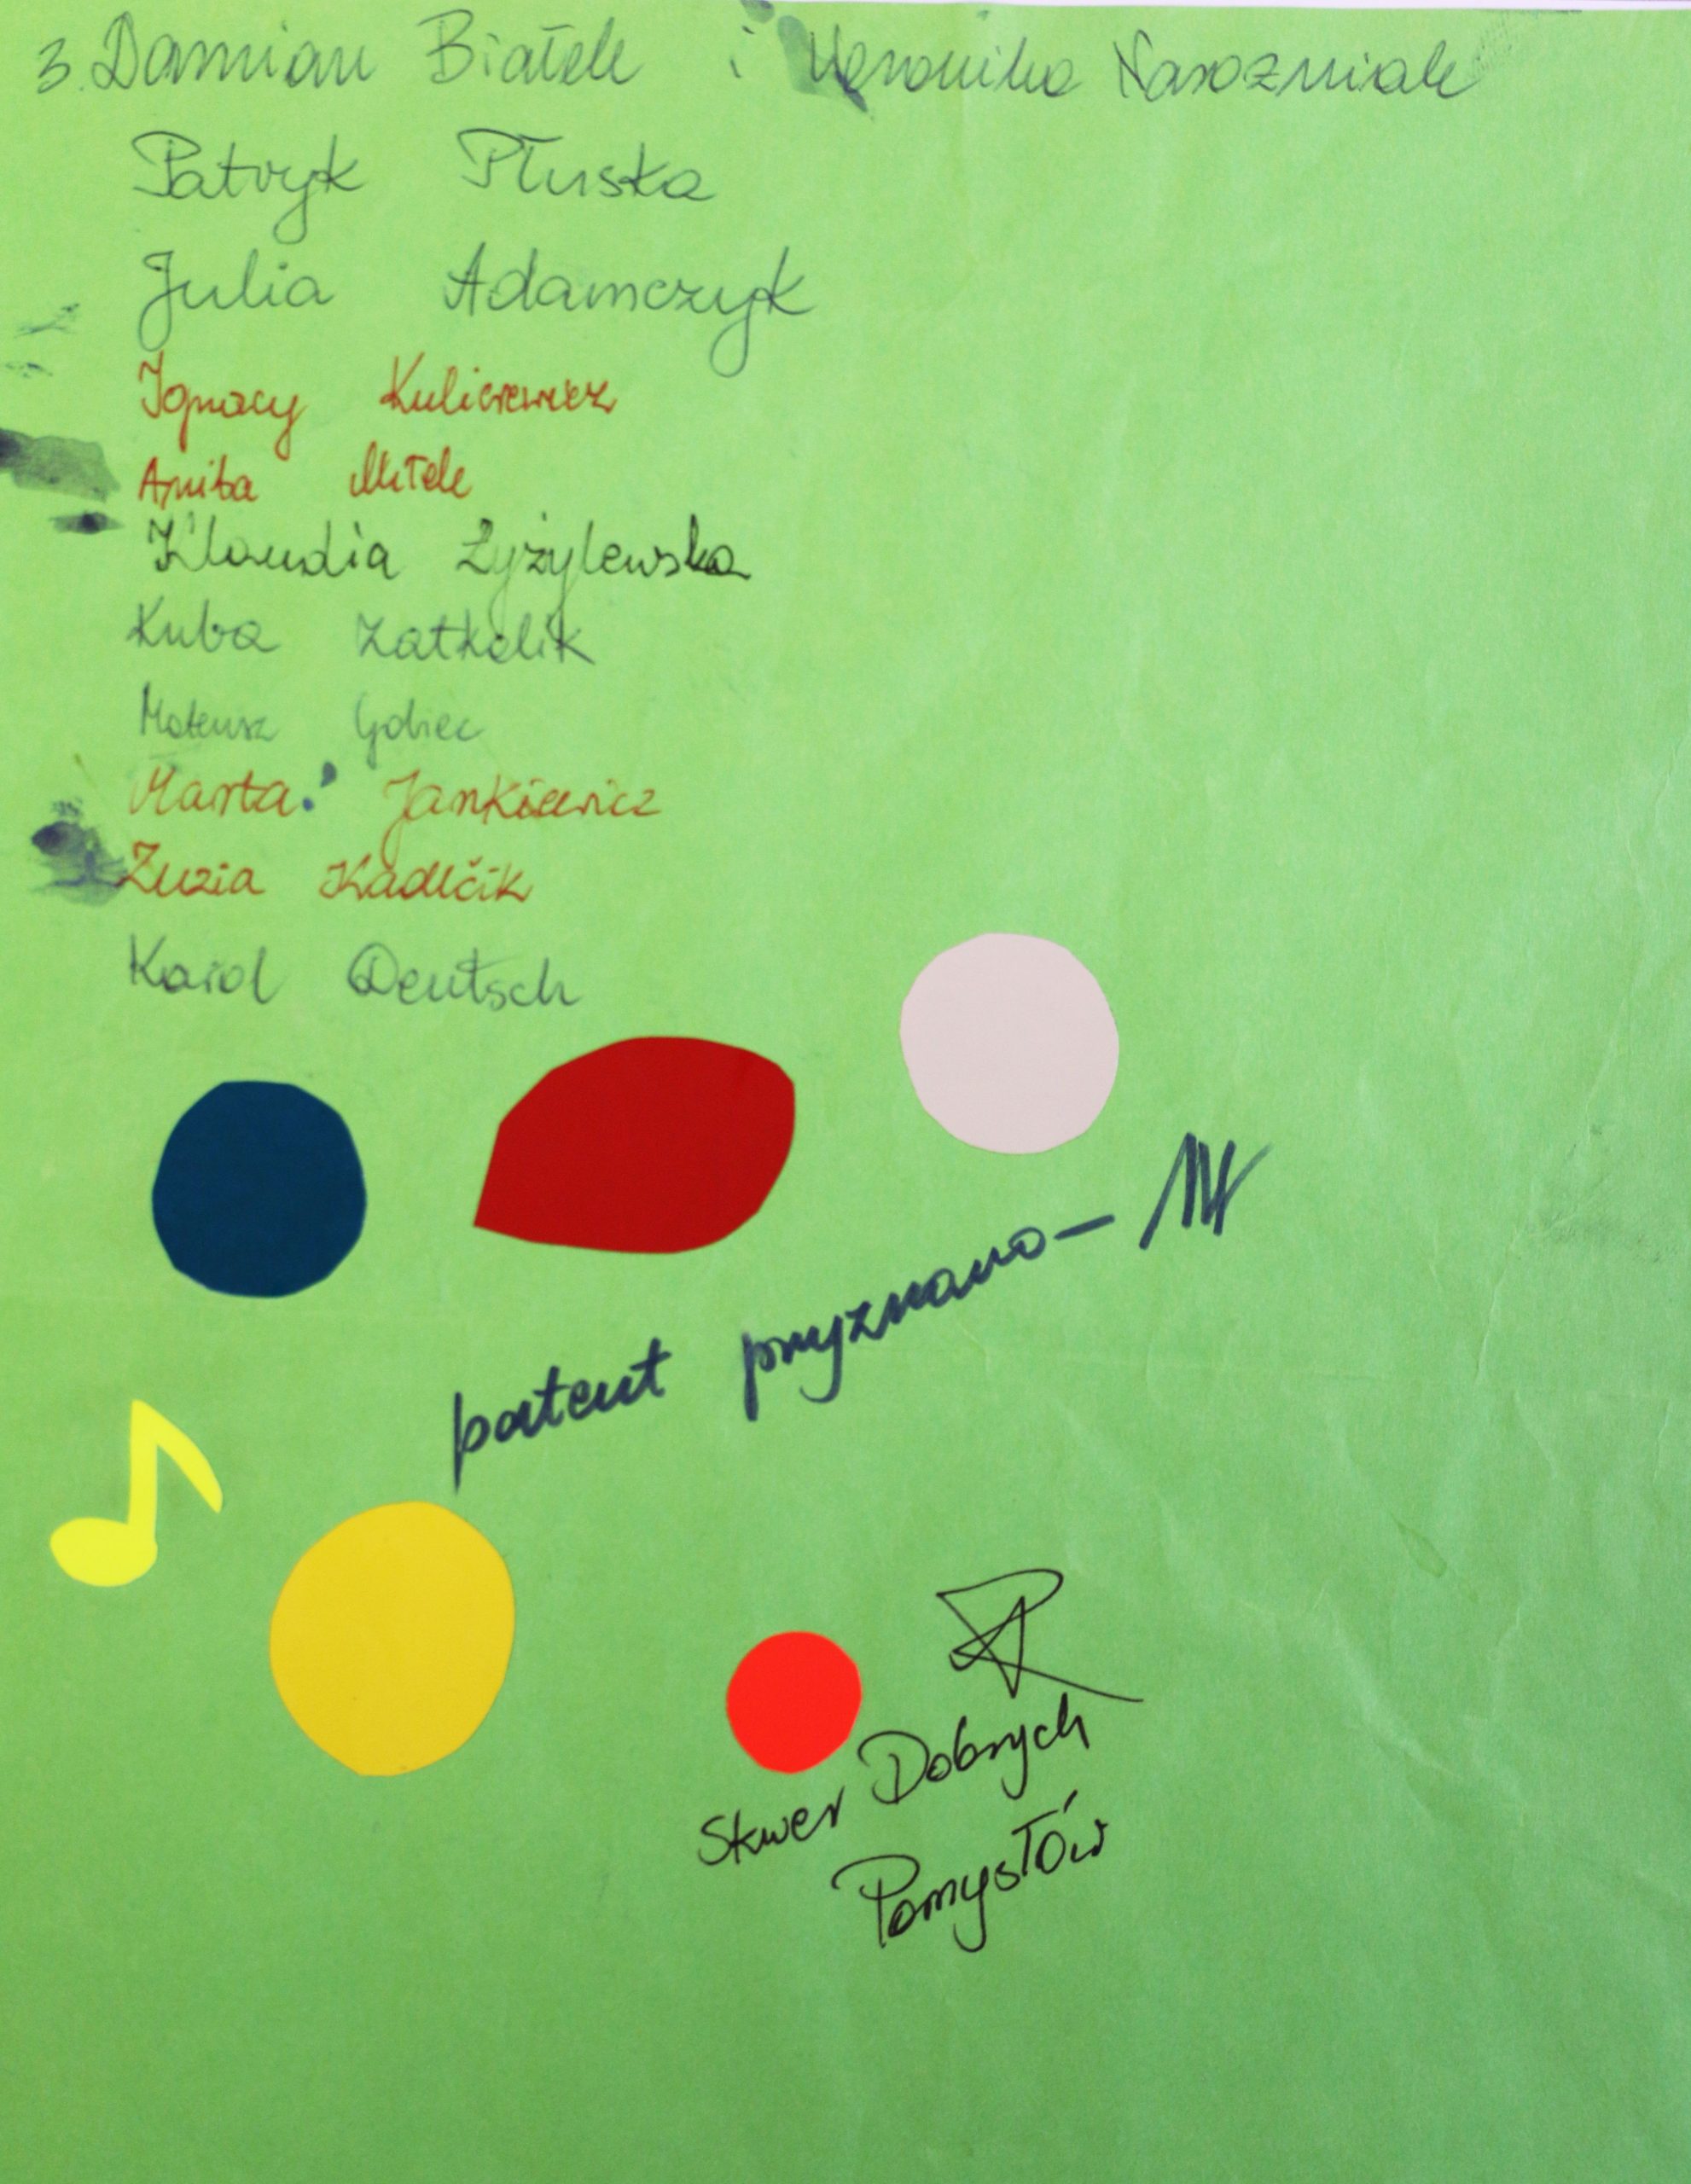 3. Damian Białek i Weronika Naroźniak
Patryk Płuska
Julia Adamczyk
Ignacy Kuliciewicz
Anita Miłek
Klaudia Żyżylewska
Kuba Zatkalik
Mateusz Gobiec
Marta Jankiewicz
Zuzia Kadlčik
Karol Deutsch
patent przyznano –
Skwer Dobrych
Pomysłów